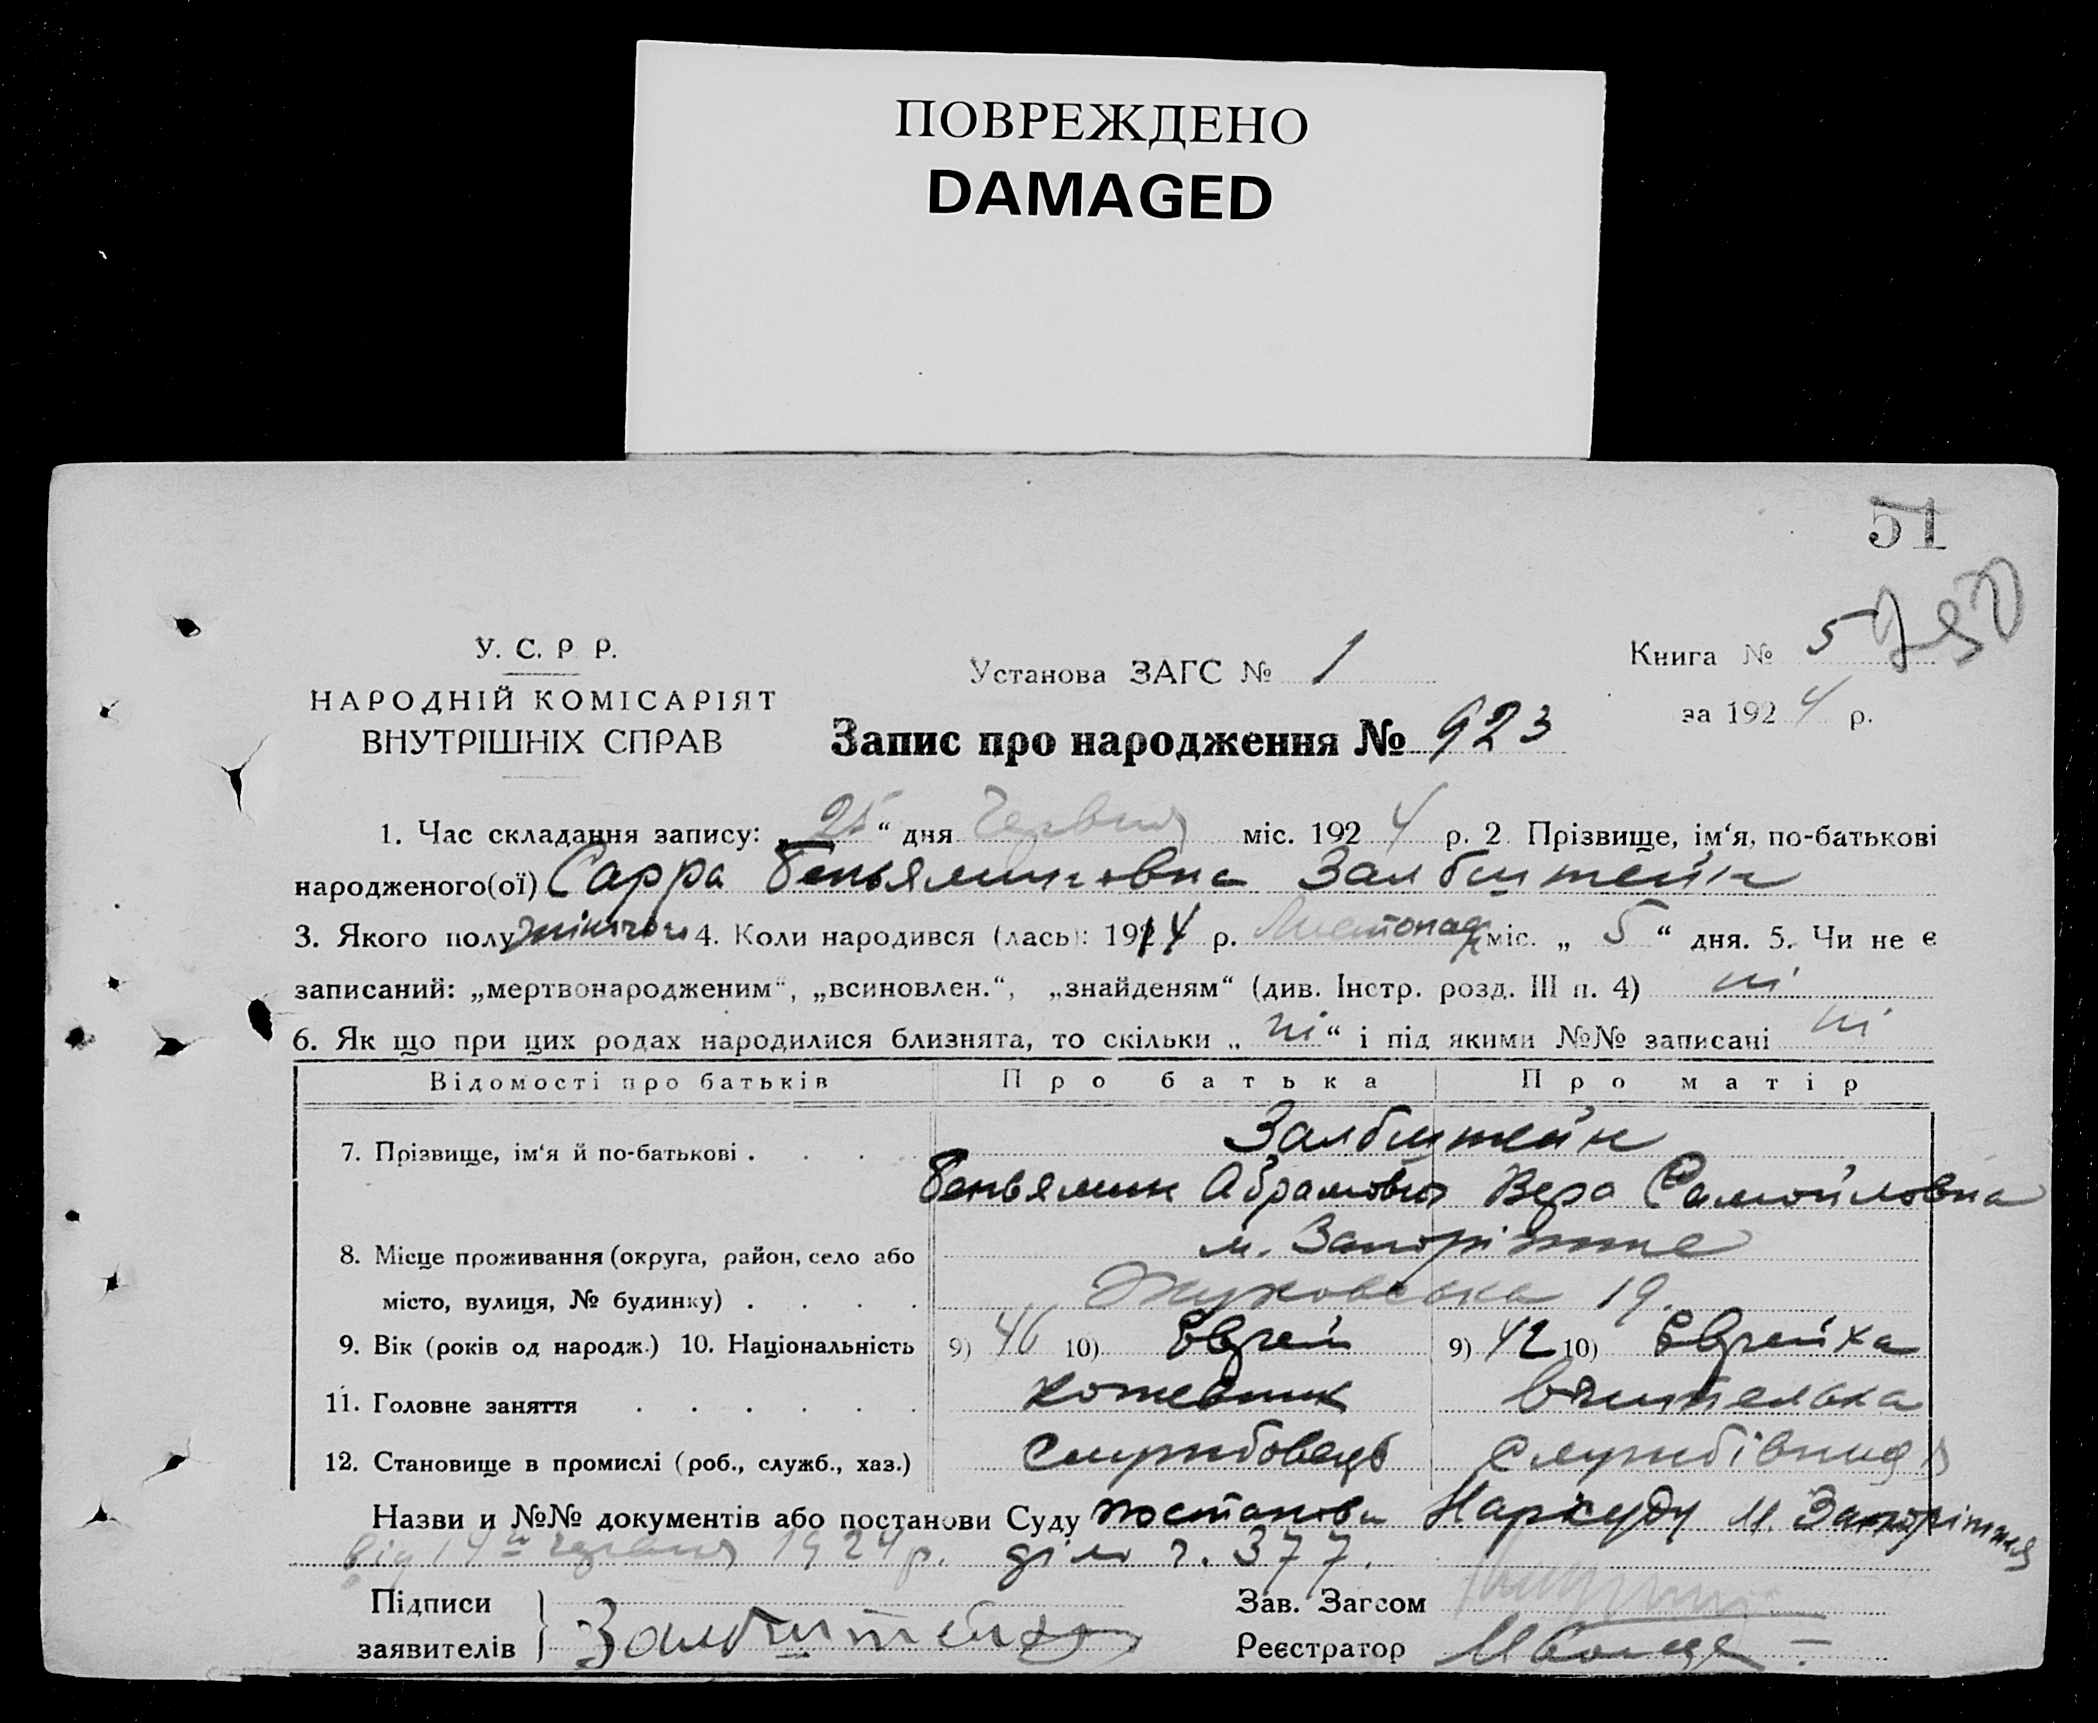 ПОВРЕЖДЕНО
DAMAGED
51
У. С. Р Р.
НАРОДНІЙ КОМІСАРІЯТ
ВНУТРІШНІХ СПРАВ
Установа ЗАГС № 1
Книга № 5
за 1924 р.
Запис про народження № 923
1. Час складання запису: „25“ дня Червня міс. 1924 р. 2 Прізвище, ім‘я, по-батькові
народженого(ої) Сарра Беньяминовна Залбштейн
3. Якого полу жіночого 4. Коли народився (лась): 1914 р. Листопад міс. „ 5 “ дня. 5. Чи не є
записаний: „мертвонародженим“, „всиновлен.“, „знайденям“ (див. Інстр. розд. III п. 4) ні
6. Як що при цих родах народилися близнята, то скільки „ ні “ і під якими №№ записані ні
Відомості про батьків Про батька Про матір
Залбштейн
7. Прізвище, ім‘я й по-батькові . . . .
Беньямин Абрамович Вера Самойловна
м. Запоріжже
8. Місце проживання (округа, район, село або
місто, вулиця, № будинку) . . . . Жуковська 19.
9. Вік (років од народж.) 10. Національність 9) 46 10) Єврей 9) 42 10) Єврейка
11. Головне заняття . . . . . . кожевник вчителька
12. Становище в промислі (роб., служб., хаз.) службовець службівниця
Назви и №№ документів або постанови Суду постанова Нарсуду м. Запоріжжя
від 14 червня 1924 р. діло ч. 377.
Підписи
заявителів
Залбштейн
Зав. Загсом
Реєстратор